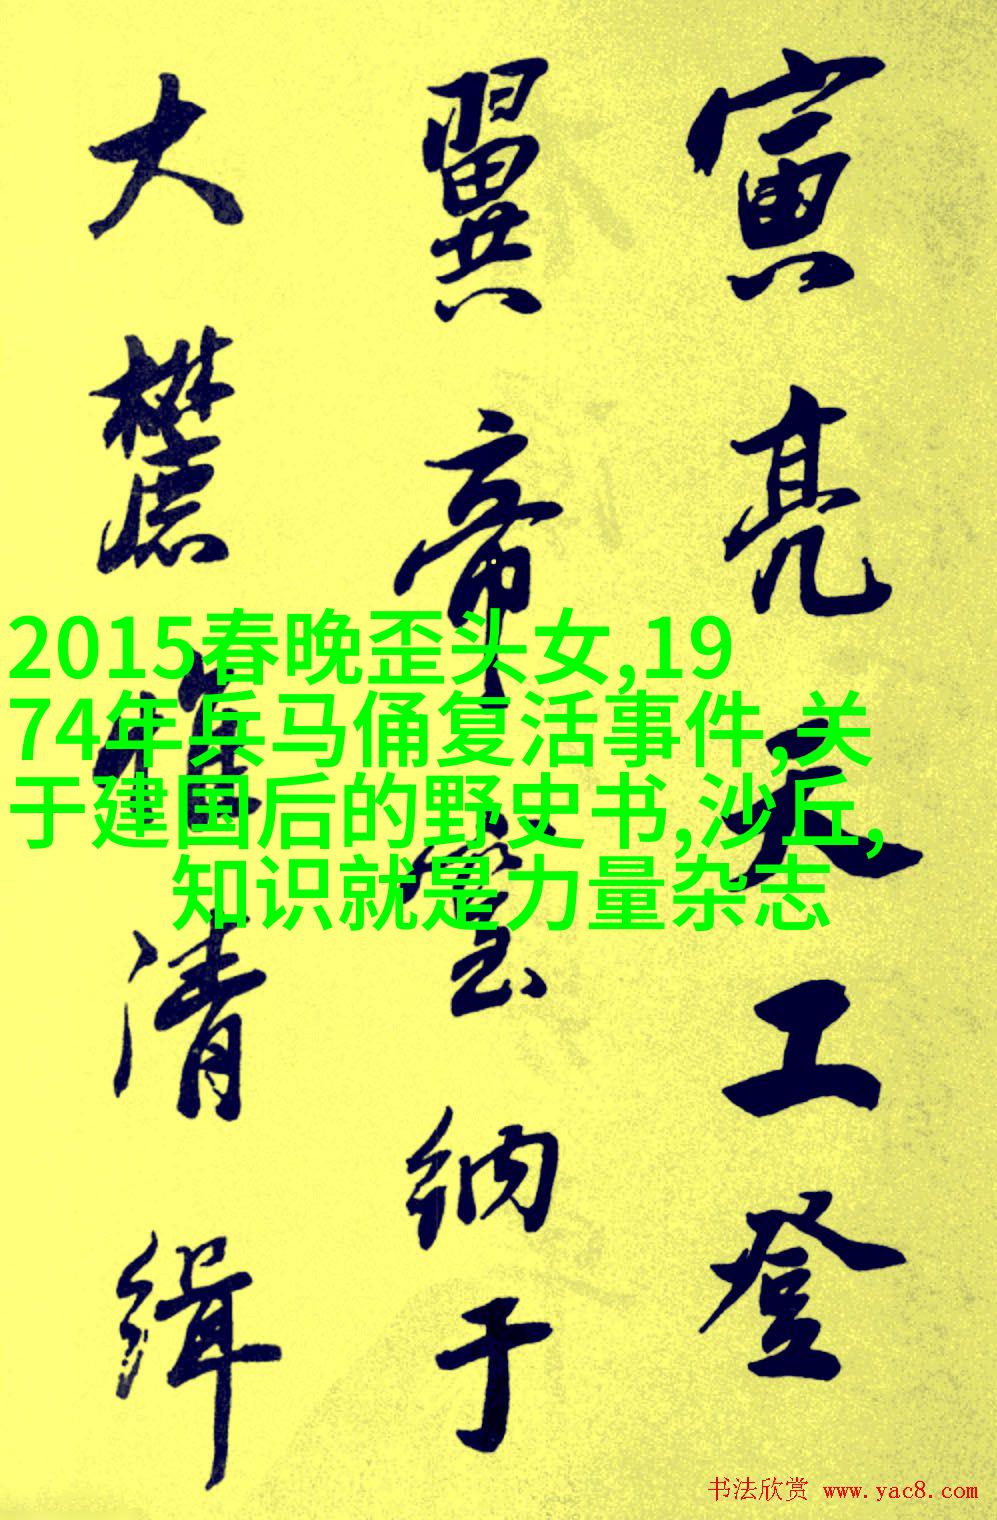 寅亮天工登
翼帝室納于
大麓權清緝
2015春晚歪头女,19
74年兵马俑复活事件,关
于建国后的野史书,沙丘,
知识就是力量杂志
书法欣赏 www.yac8.com